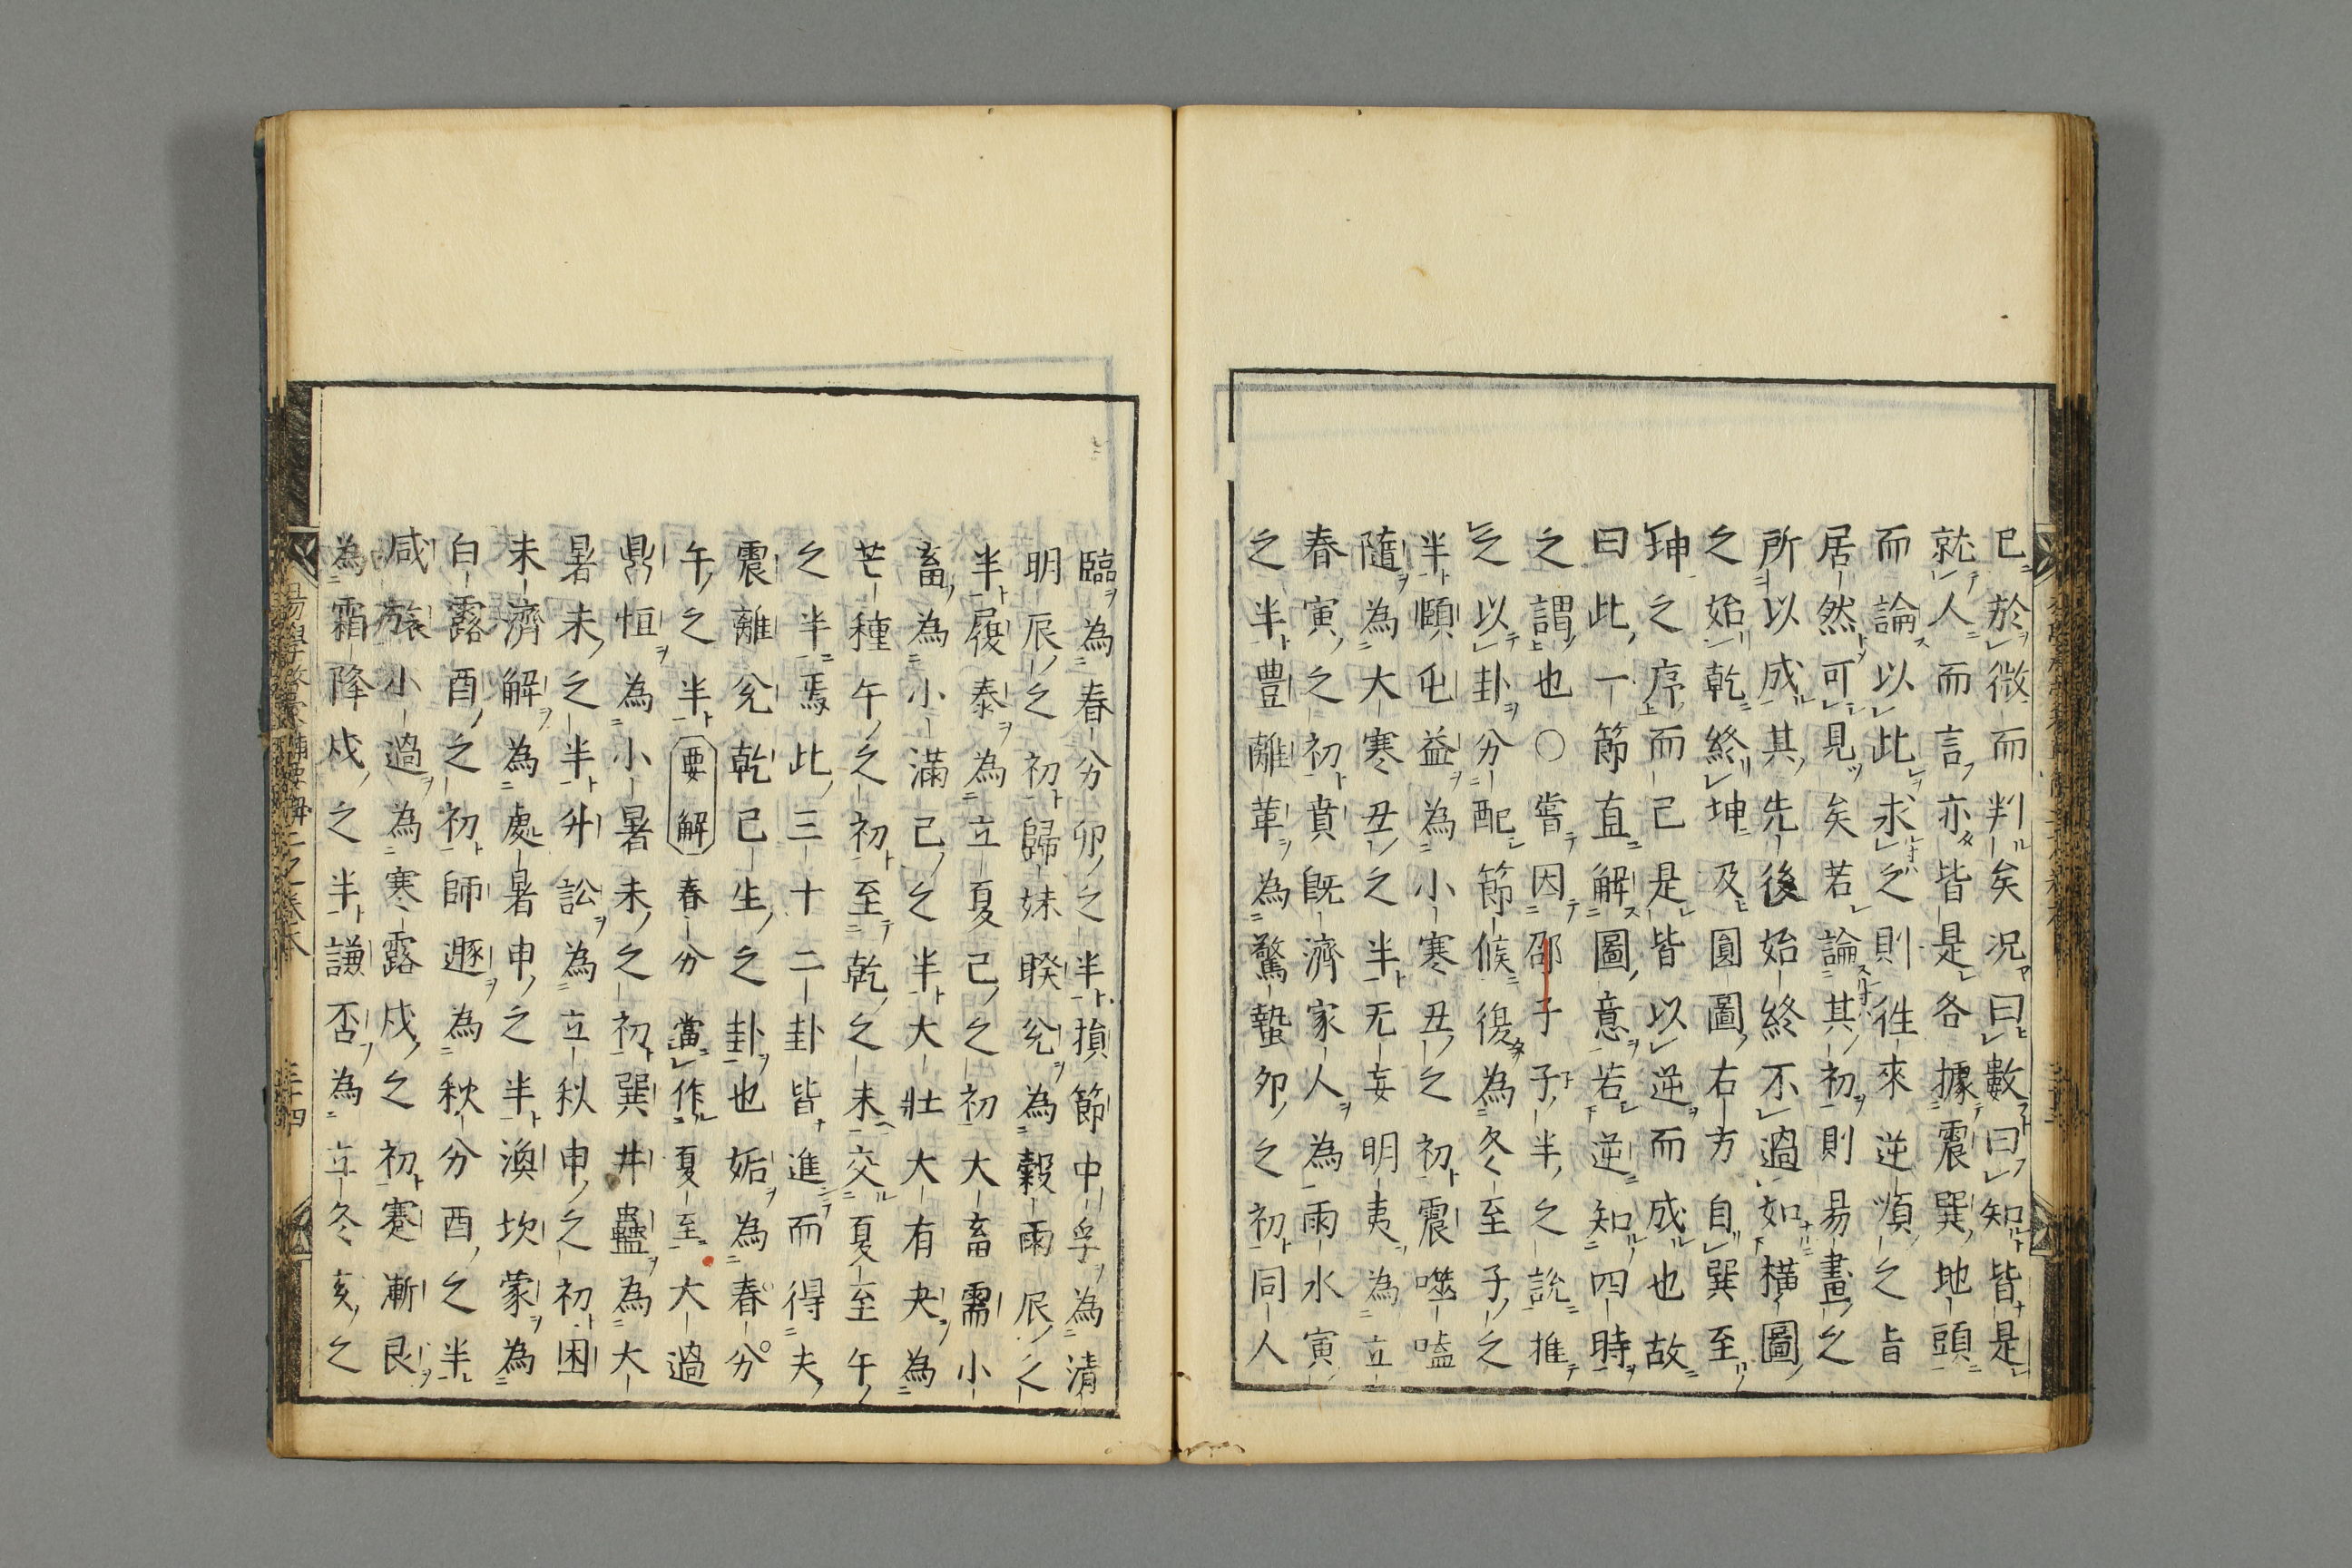 已於微而判矣况曰數曰知皆是
就人而言亦皆是各據震巽地頭
而論以此求之則徃來逆順之旨
居然可見矣若論其初則易畫之
所以成其先後始終不過如橫圖
之始乾終坤及圓圖右方自巽至
坤之序而已是皆以逆而成也故
曰此一節直解圖意若逆知四時
之謂也〇嘗因邵子子半之說推
之以卦分配節候復為冬至子之
半頤屯益為小寒丑之初震噬嗑
隨為大寒丑之半无妄明夷為立
春寅之初賁既濟家人為雨水寅
之半豊離革為驚蟄夘之初同人
臨為春分卯之半損節中孚為清
明辰之初歸妹睽兊為穀雨辰之
半履泰為立夏己之初大畜需小
畜為小滿己之半大壯大有夬為
芒種午之初至乾之末交夏至午
之半焉此三十二卦皆進而得夫
震離兊乾已生之卦也姤為春分
午之半要解春分當作夏至大過
鼎恒為小暑未之初巽井蠱為大
暑未之半升訟為立秋申之初困
未濟解為處暑申之半渙坎蒙為
白露酉之初師遯為秋分酉之半
咸旅小過為寒露戌之初蹇漸艮
為霜降戌之半謙否為立冬亥之